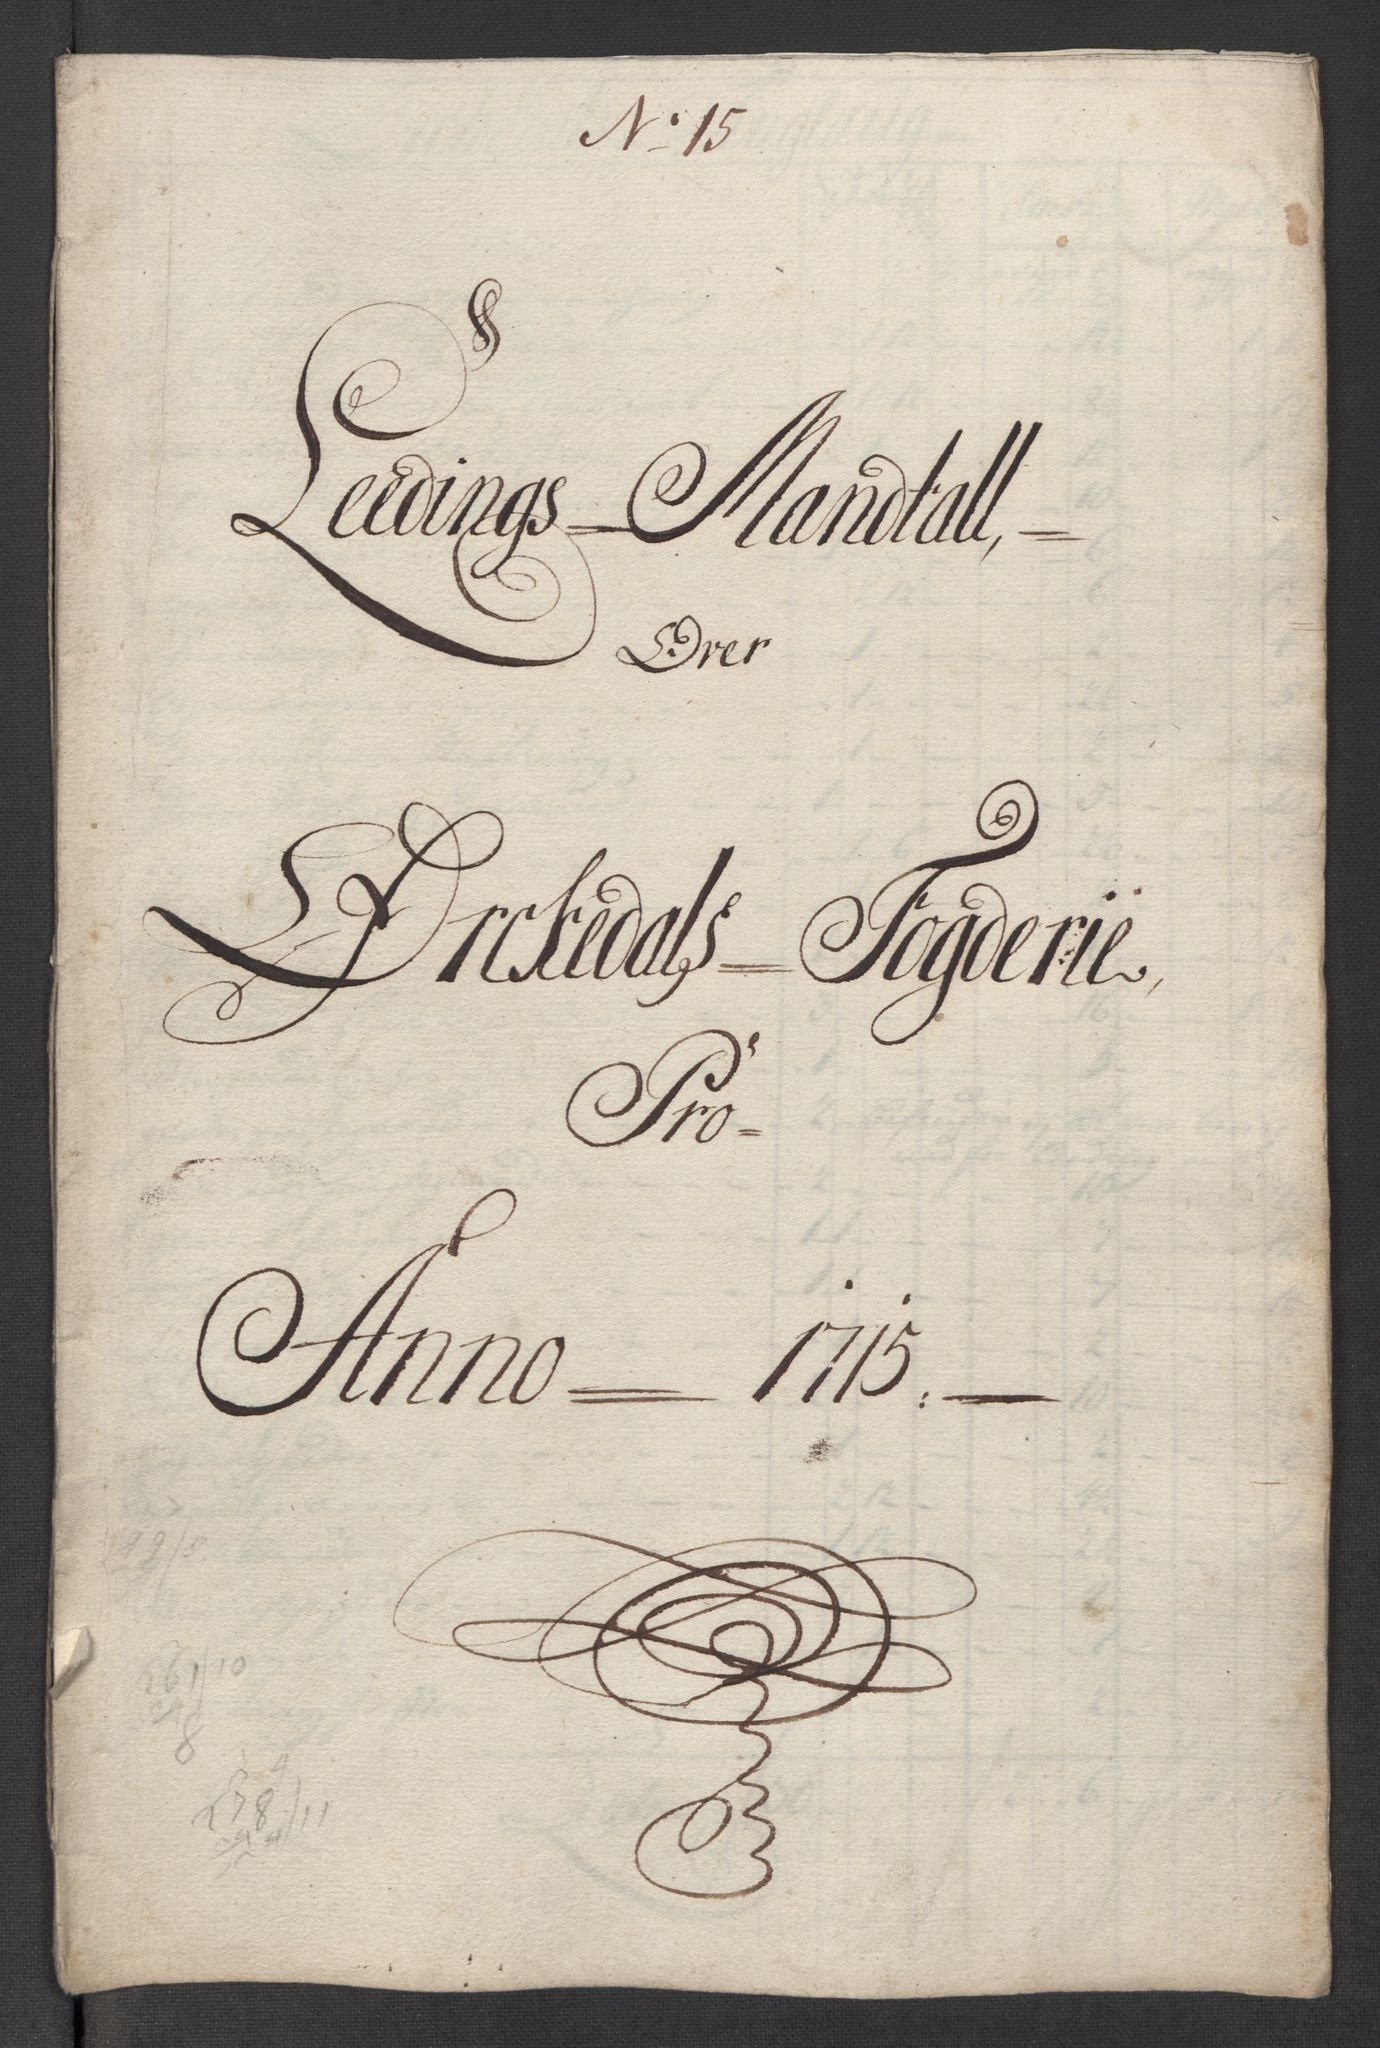 No 15
Leedings = Mandtall, =
Over
Orckedals = Fogderie,
Pro =
Anno = 1715. =
261/10
8
238/11